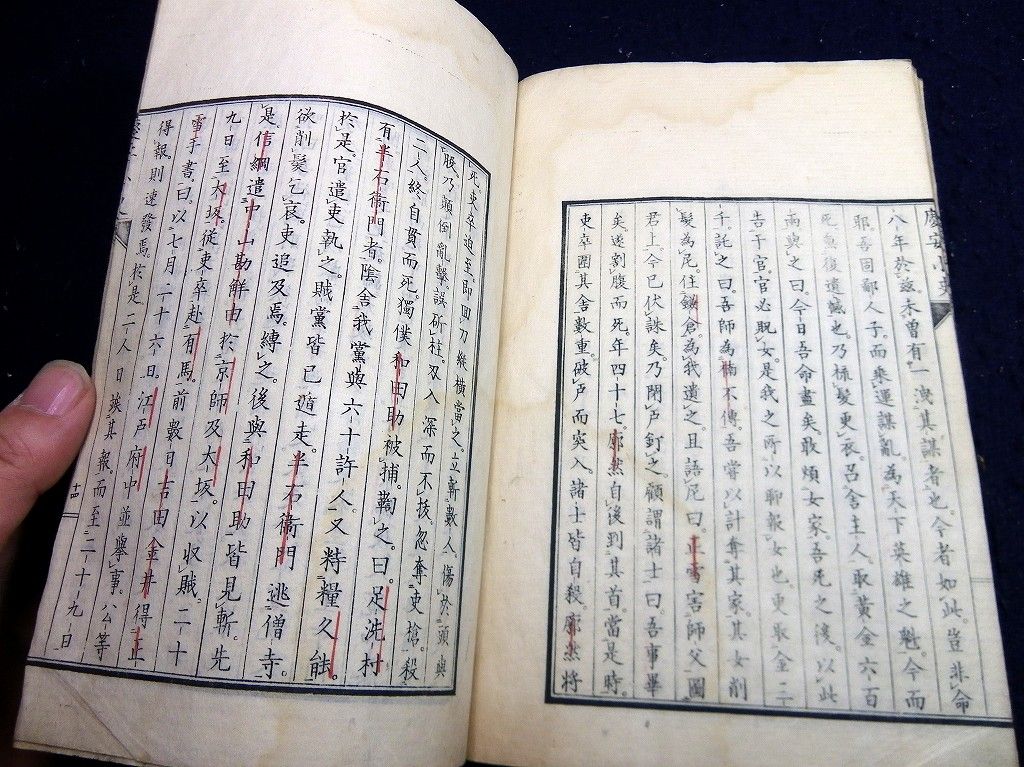 慶安小史
八年於茲。未曾有一洩其謀者也。今者如此。豈非命
耶。吾固鄙人子。而乘運謀亂。為天下英雄之魁。今而
死無復遺憾也。乃梳髮更衣。呂舍主人。取黃金六百
兩與之曰。今日吾命盡矣。敢煩女家。吾死之後。以此
告于官。官必貺女。是我之所以聊報女也。更取金二
千。託之曰。吾師為楠不傳。吾嘗以計奪其家。其女削
髮為尼。住鎌倉。為我遺之。且語尼曰。正雪害師父圖
君上。今已伏誅矣。乃閉戶釘之。顧謂諸士曰。吾事畢
矣。遂割腹而死。年四十七。廓然自後到其首。當是時。
吏卒圍其舍數重。破戶而突入。諸士皆自殺。廓然將
死。吏卒迫至。即回刀縱橫當之。立斬數人。傷於頭與
股。乃顛倒亂擊。誤斫柱。刃入深而不拔。忽奪吏槍。殺
二人。終自貫而死。獨僕和田助被捕。鞫之曰。足洗村
有半右衛門者。陰舍我黨與六十許人。又糧久能。
於是。官遣吏執之。賊黨皆已遁走。半右衛門逃僧寺。
欲削髮乞哀。吏追及焉。縛之。後與和田助皆見斬。先
是信綱遣中山勘解由於京師及大坂。以收賊。二十
九日至大坂。從吏卒赴有馬。前數日吉田金井得正
雪手書曰。以七月二十六日。江戶府中並舉事。公等
得報則速發焉。於是二人日竢其報。而至二十九日
十四